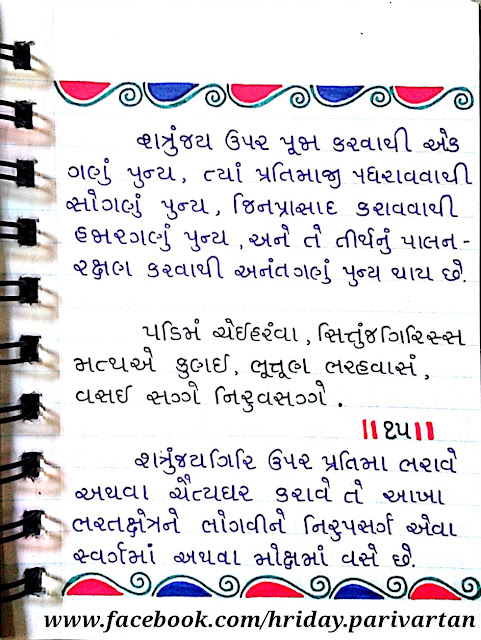 શત્રુંજય ઉપર પૂજા કરવાથી એક
ગણું પુન્ય, ત્યાં પ્રતિમાજી પધરાવવાથી
સોગણું પુન્ય, જિનપ્રાસાદ કરાવવાથી
હજારગણું પુન્ય, અને તે તીર્થનું પાલન-
રક્ષણ કરવાથી અનંતગણું પુન્ય થાય છે.
પડિમં ચેઈહરંવા, સિત્તુંજગિરિસ્સ
મત્થએ કુણઈ, ભૂત્તૂણ ભરહવાસં,
વસઈ સગ્ગે નિરુવસગ્ગે.
||૨૫||
શત્રુંજયગિરિ ઉપર પ્રતિમા ભરાવે
અથવા ચૈત્યઘર કરાવે તે આખા
ભરતક્ષેત્રને ભોગવીને નિરુપસર્ગ એવા
સ્વર્ગમાં અથવા મોક્ષમાં વસે છે.
www.facebook.com/hriday.parivartan